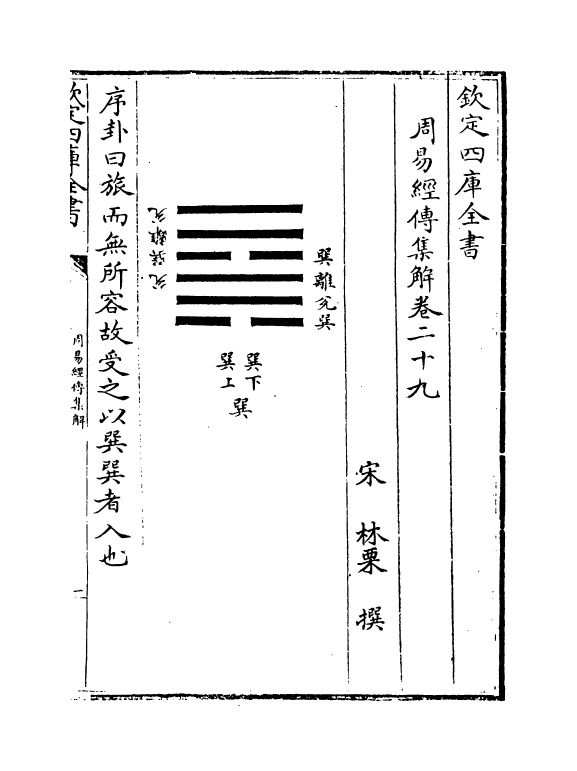 欽定四庫全書
周易經傳集解卷二十九
宋 林栗 撰
巽離兌巽
巽下
巽上
巽
兌巽離兌
序卦曰旅而無所容故受之以巽巽者入也
欽定四庫全書
周易經傳集解
一